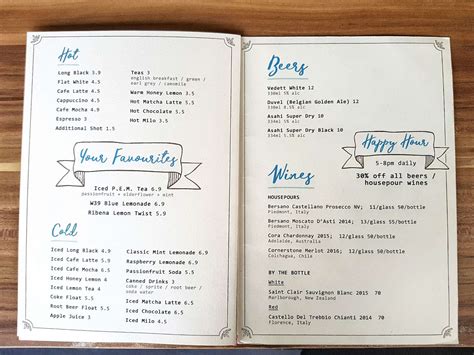 Hot
Long Black 3.9
Flat White 4.5
Cafe Latte 4.5
Cappuccino 4.5
Cafe Mocha 4.9
Espresso 3
Additional Shot 1.5
Teas 3
english breakfast / green /
earl grey / camomile
Warm Honey Lemon 3.9
Hot Matcha Latte 5.5
Hot Chocolate 5.5
Hot Milo 3.5
Your Favourites
Iced P.E.M. Tea 6.9
passionfruit + elderflower + mint
W39 Blue Lemonade 6.9
Ribena Lemon Twist 5.9
Cold
Iced Long Black 4.9
Iced Cafe Latte 5.5
Iced Cafe Mocha 6.5
Iced Honey Lemon 4.9
Iced Lemon Tea 4
Coke Float 5.5
Apple Juice 3
Classic Mint Lemonade 6.9
Raspberry Lemonade 6.9
Passionfruit Soda 5.5
Canned Drinks 3
coke / sprite / root beer /
soda water
Iced Matcha Latte 6.5
Iced Chocolate 6.5
Iced Milo 4.5
Beers
Vedett White 12
330ml 5% alc
Duvel (Belgian Golden Ale) 12
330ml 8.5% alc
Asahi Super Dry 10
Asahi Super Dry Black 10
Happy Hour
5-8pm daily
30% off all beers /
housepour wines
Wines
HOUSEPOURS
Bersano Castellano Prosecco NV; 11/glass 50/bottle
Piedmont, Italy
Bersano Moscato D'Asti 2014; 13/glass 55/bottle
Piedmont, Italy
Cora Chardonnay 2015; 12/glass 50/bottle
Adelaide, Australia
Cornerstone Merlot 2016; 12/glass 50/bottle
Colchagua, Chile
BY THE BOTTLE
White
Saint Clair Sauvignon Blanc 2015 70
Marlborough, New Zealand
Red
Castello Del Trebbio Chianti 2014 70
Florence, Italy